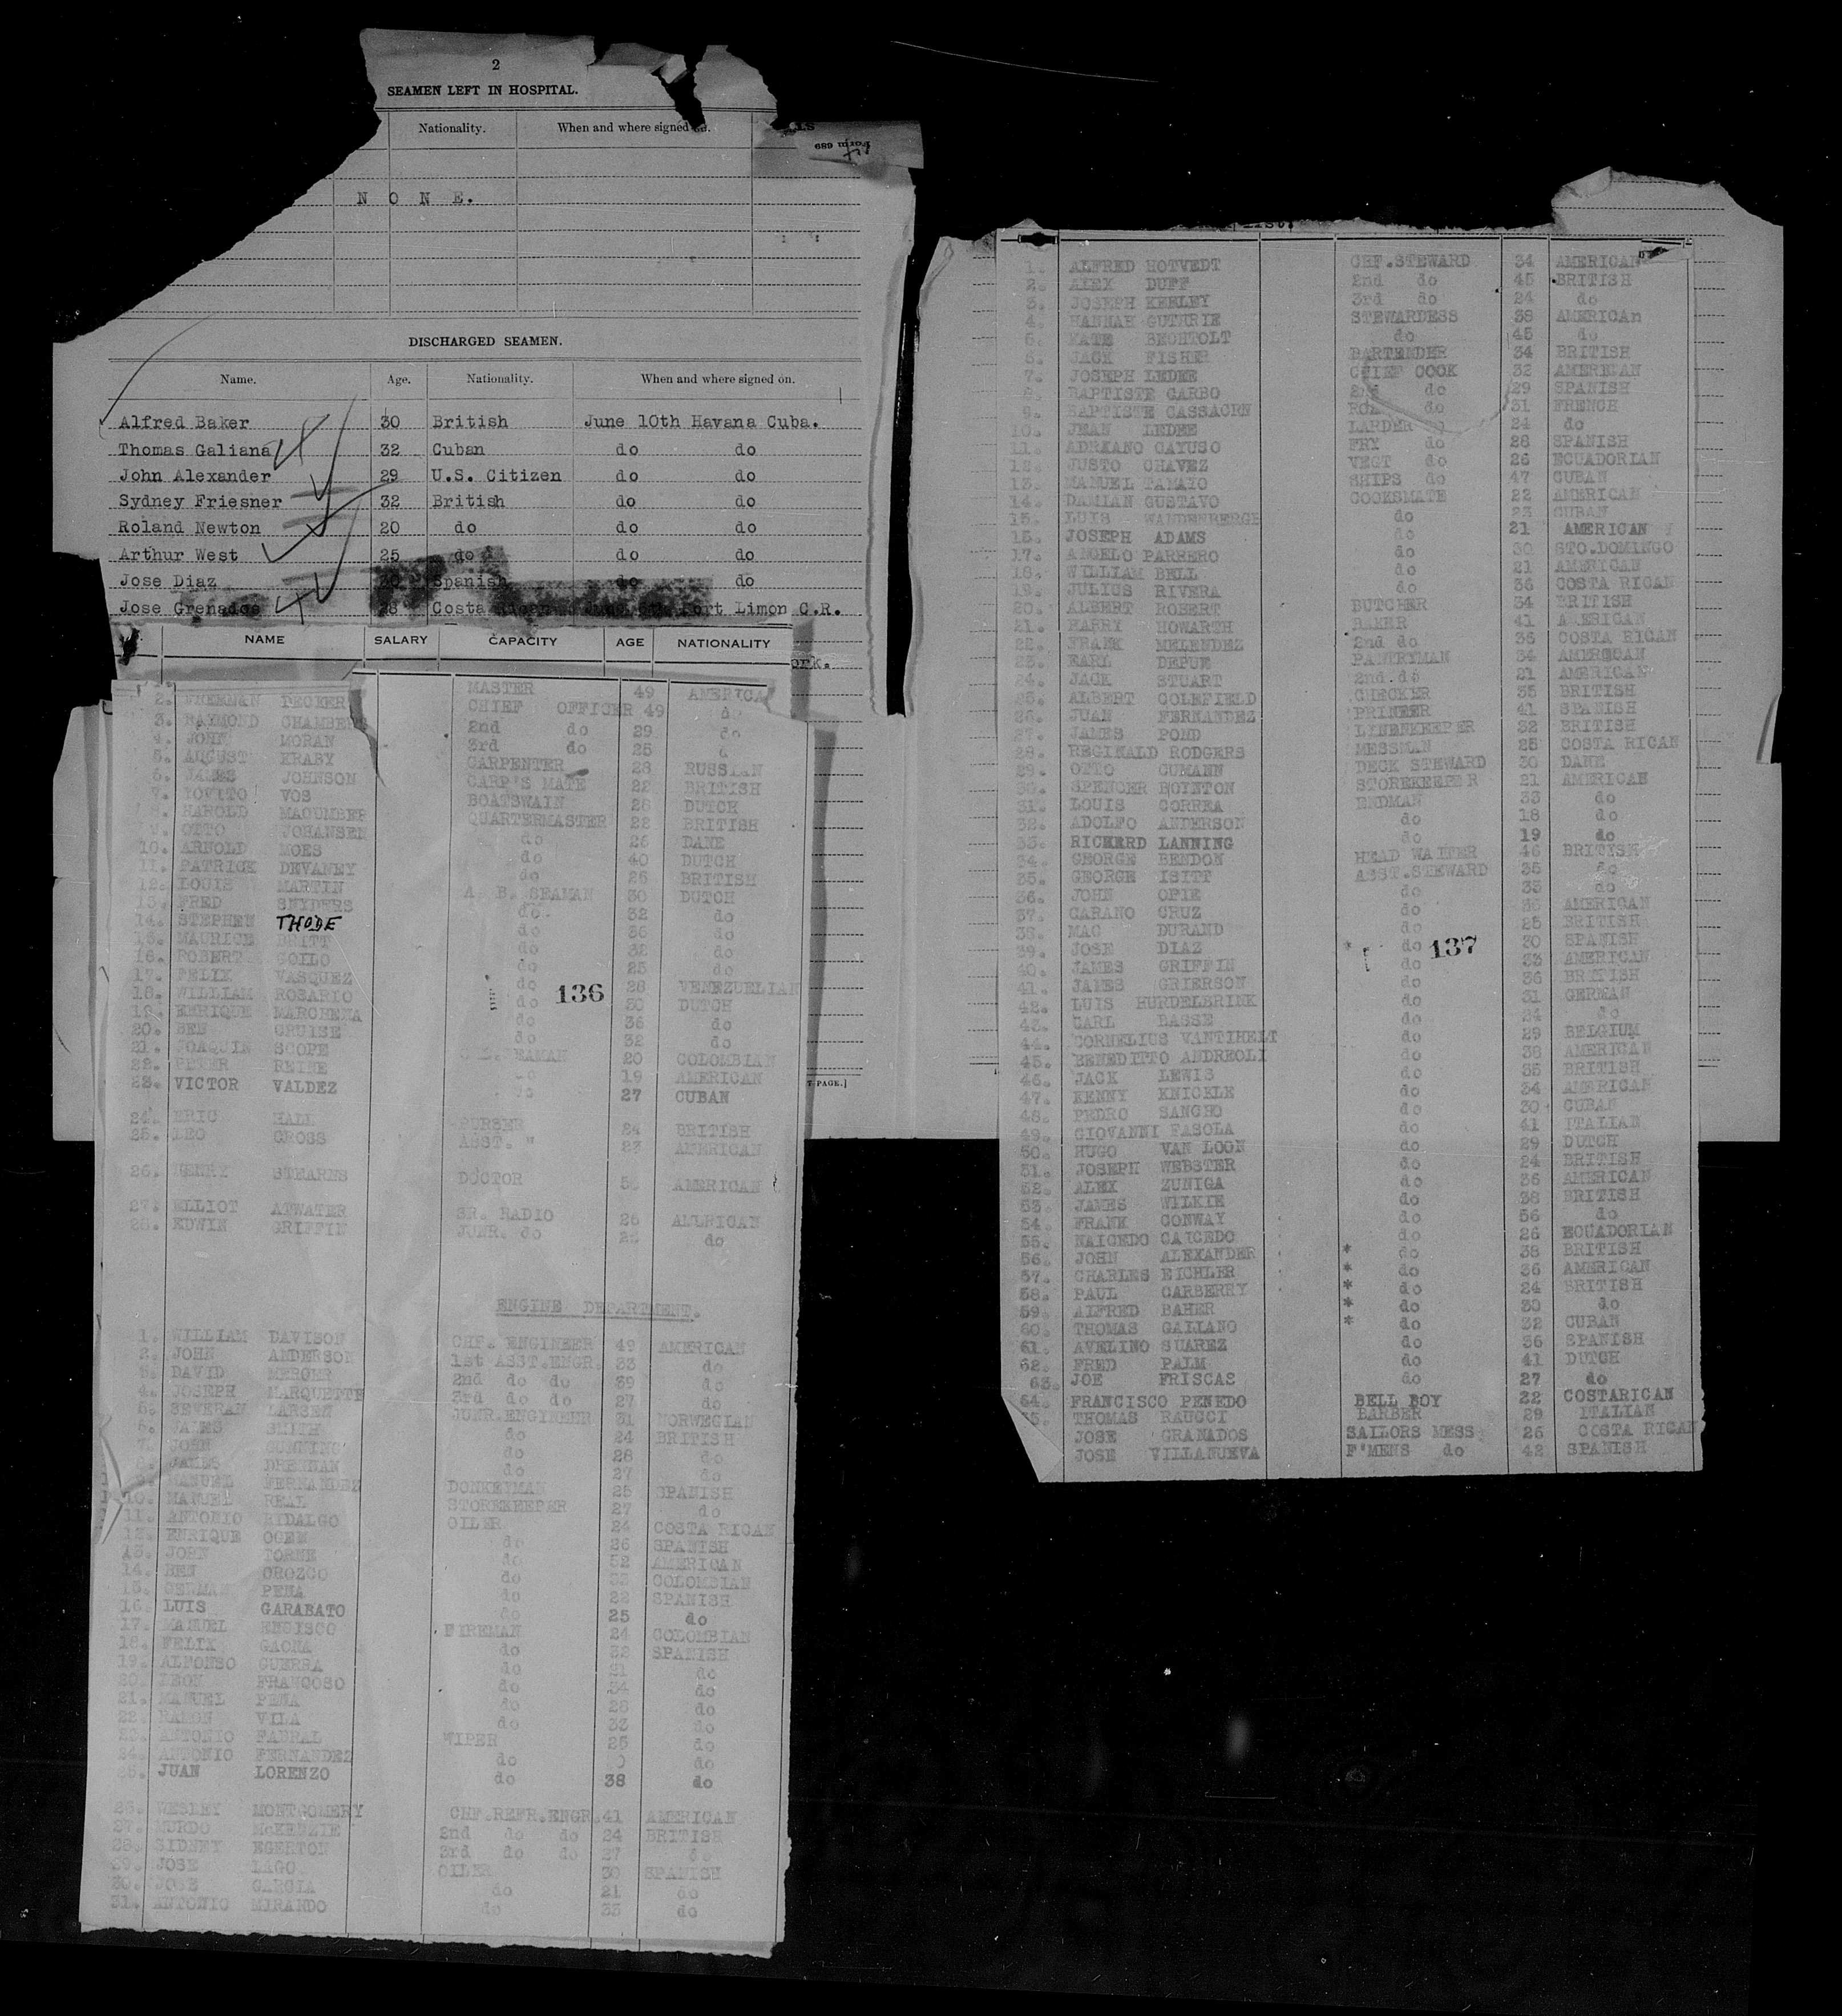 2
SEAMEN LEFT IN HOSPITAL.
Nationality. When and where signed on.
Form 689
N O N E.
DISCHARGED SEAMEN.
Name. Age. Nationality. When and where signed on.
Alfred Baker 30 British June 10th Havana Cuba.
Thomas Galiana 32 Cuban do do
John Alexander 29 U.S. Citizen do do
Sydney Friesner 32 British do do
Roland Newton 20 do do do
Arthur West 25 do do do
Jose Diaz 30 Spanish do do
Jose Grenados 28 Costa Port Limon C.R.
NAME SALARY CAPACITY AGE NATIONALITY
ork.
MASTER 49 AMERICA
2. FREEMAN DECKER CHIEF OFFICER 49 do
3. RAYMOND CHAMBERS 2nd do 29 do
4. JOHN MORAN 3rd do 25
5. AUGUST KRABY CARPENTER 28 RUSSIAN
6. JAMES JOHNSON CARP'S MATE 22 BRITISH
7. VOS BOATSWAIN 28 DUTCH
8. HAROLD MACUMBER QUARTERMASTER 22 BRITISH
9. OTTO JOHANSEN do 26 DANE
10. ARNOLD MOES do 40 DUTCH
11. PATRICK DEVANEY do 26 BRITISH
12. LOUIS MARTIN A. B. SEAMAN 30 DUTCH
13. FRED SNYDERS do 32 do
14. STEPHEN THODE do 36 do
15. MAURICE BRITT do 32 do
16. ROBERT GOILO do 25 do
17. FELIX VASQUEZ do 28 VENEZUELIAN
18. WILLIAM ROSARIO do 136 30 DUTCH
19. ENRIQUE MARCHENA do 36 do
20. BEN CRUISE do 32 do
21. JOAQUIN SCOPE SEAMAN 20 COLOMBIAN
22. PETER REINE do 19 AMERICAN
23. VICTOR VALDEZ do 27 CUBAN
24. ERIC HALL PURSER 24 BRITISH
25. LEO CROSS ASST. " 23 AMERICAN
26. HENRY STEARNS DOCTOR AMERICAN
27. ELLIOT ATWATER SR. RADIO 26 AMERICAN
28. EDWIN GRIFFIN JUNR. do 22 do
T PAGE.]
ENGINE DEPARTMENT.
1. WILLIAM DAVISON CHF. ENGINEER 49 AMERICAN
2. JOHN ANDERSON 1st ASST.ENGR. 33 do
3. DAVID MERCER 2nd do do 39 do
4. JOSEPH MARQUETTE 3rd do do 27 do
5. SEVERAN LARSEN JUNR.ENGINEER 31 NORWEGIAN
6. JAMES SMITH do 24 BRITISH
7. JOHN GUNNING do 28 do
8. JAMES BRENNAN do 27 do
9. MANUEL FERNANDEZ DONKEYMAN 25 SPANISH
10. MANUEL REAL STOREKEEPER 27 do
11. ANTONIO HIDALGO OILER 24 COSTA RICAN
12. ENRIQUE OGEN do 26 SPANISH
13. JOHN TORNE do 52 AMERICAN
14. BEN OROZCO do 33 COLOMBIAN
15. GERMAN PENA do 22 SPANISH
16. LUIS GARABATO do 25 do
17. MANUEL ENCISCO FIREMAN 24 COLOMBIAN
18. FELIX GAONA do 32 SPANISH
19. ALFONSO GUERRA do 21 do
20. LEON FRANCOSO do 34 do
21. MANUEL PENA do 28 do
22. RAMON VILA do 33 do
23. ANTONIO FABRAL WIPER 25 do
24. ANTONIO FERNANDEZ do do
25. JUAN LORENZO do 38 do
26. WESLEY MONTGOMERY CHF.REFR.ENGR. 41 AMERICAN
27. MURDO McKENZIE 2nd do do 24 BRITISH
28. SIDNEY EGERTON 3rd do do 27 do
29. JOSE LAGO OILER 30 SPANISH
30. JOSE GARCIA do 21 do
31. ANTONIO MIRANDO do 33 do
1. ALFRED HOTVEDT CHF.STEWARD 34 AMERICAN
2. ALEX DUFF 2nd do 45 BRITISH
3. JOSEPH KEELEY 3rd do 24 do
4. HANNAH GUTHRIE STEWARDESS 38 AMERICAn
5. KATE BECHTOLT do 45 do
6. JACK FISHER BARTENDER 34 BRITISH
7. JOSEPH LEDEE CHIEF COOK 32 AMERICAN
8. BAPTISTE CARBO 2nd do 29 SPANISH
9. BAPTISTE CASSAGRN do 31 FRENCH
10. JEAN LEDEE LARDER do 24 do
11. ADRIANO CAYUSO FRY do 28 SPANISH
12. JUSTO CHAVEZ VEGT do 26 ECUADORIAN
13. MANUEL TAMAYO SHIPS do 47 CUBAN
14. DAMIAN GUSTAVO COOKSMATE 22 AMERICAN
15. LUIS WANDENBERGE do 23 CUBAN
16. JOSEPH ADAMS do 21 AMERICAN
17. ANGELO PARRERO do 30 STO.DOMINGO
18. WILLIAM BELL do 21 AMERICAN
19. JULIUS RIVERA do 36 COSTA RICAN
20. ALBERT ROBERT BUTCHER 34 BRITISH
21. HARRY HOWARTH BAKER 41 AMERICAN
22. FRANK MELENDEZ 2nd do 36 COSTA RICAN
23. EARL DEPUE PANTRYMAN 34 AMERICAN
24. JACK STUART 2nd.do 21 AMERICAN
25. ALBERT COLEFIELD CHECKER 35 BRITISH
26. JUAN FERNANDEZ PRINTER 41 SPANISH
27. JAMES POND LINENKEEPER 32 BRITISH
28. REGINALD RODGERS MESSMAN 25 COSTA RICAN
29. OTTO GUMANN DECK STEWARD 30 DANE
30. SPENCER BOYNTON STOREKEEPER 21 AMERICAN
31. LOUIS CORREA ENDMAN 33 do
32. ADOLFO ANDERSON do 18 do
33. RICHERD LANNING do 19 do
34. GEORGE BENDON HEAD WAITER 46 BRITISH
35. GEORGE ISITT ASST.STEWARD 35 do
36. JOHN OPIE do 33 do
37. CARANO CRUZ do AMERICAN
38. MAC DURAND do 25 BRITISH
39. JOSE DIAZ * do 137 30 SPANISH
40. JAMES GRIFFIN do 33 AMERICAN
41. JAMES GRIERSON do 36 BRITISH
42. LUIS HURDELBRINK do 31 GERMAN
43. CARL BASSE do 24 do
44. CORNELIUS VANTIHELT do 29 BELGIUM
45. BENEDITTO ANDREOLI do 38 AMERICAN
46. JACK LEWIS do 35 BRITISH
47. KENNY KNICKLE do 34 AMERICAN
48. PEDRO SANCHO do 30 CUBAN
49. GIOVANNI FASOLA do 41 ITALIAN
50. HUGO VAN LOON do 29 DUTCH
51. JOSEPH WEBSTER do 24 BRITISH
52. ALEX ZUNIGA do 36 AMERICAN
53. JAMES WILKIE do 38 BRITISH
54. FRANK CONWAY do 56 do
55. NAICEDO CAICEDO do 26 ECUADORIAN
56. JOHN ALEXANDER * do 38 BRITISH
57. CHARLES EICHLER * do 36 AMERICAN
58. PAUL CARBERRY * do 24 BRITISH
59. ALFRED BAHER * do 30 do
60. THOMAS GALIANO * do 32 CUBAN
61. AVELINO SUAREZ do 36 SPANISH
62. FRED PALM do 41 DUTCH
63. JOE FRISCAS do 27 do
64. FRANCISCO PENEDO BELL BOY 22 COSTARICAN
65. THOMAS RAUCCI BARBER 29 ITALIAN
JOSE GRANADOS SAILORS MESS 26 COSTA RICAN
JOSE VILLANUEVA F'MENS do 42 SPANISH